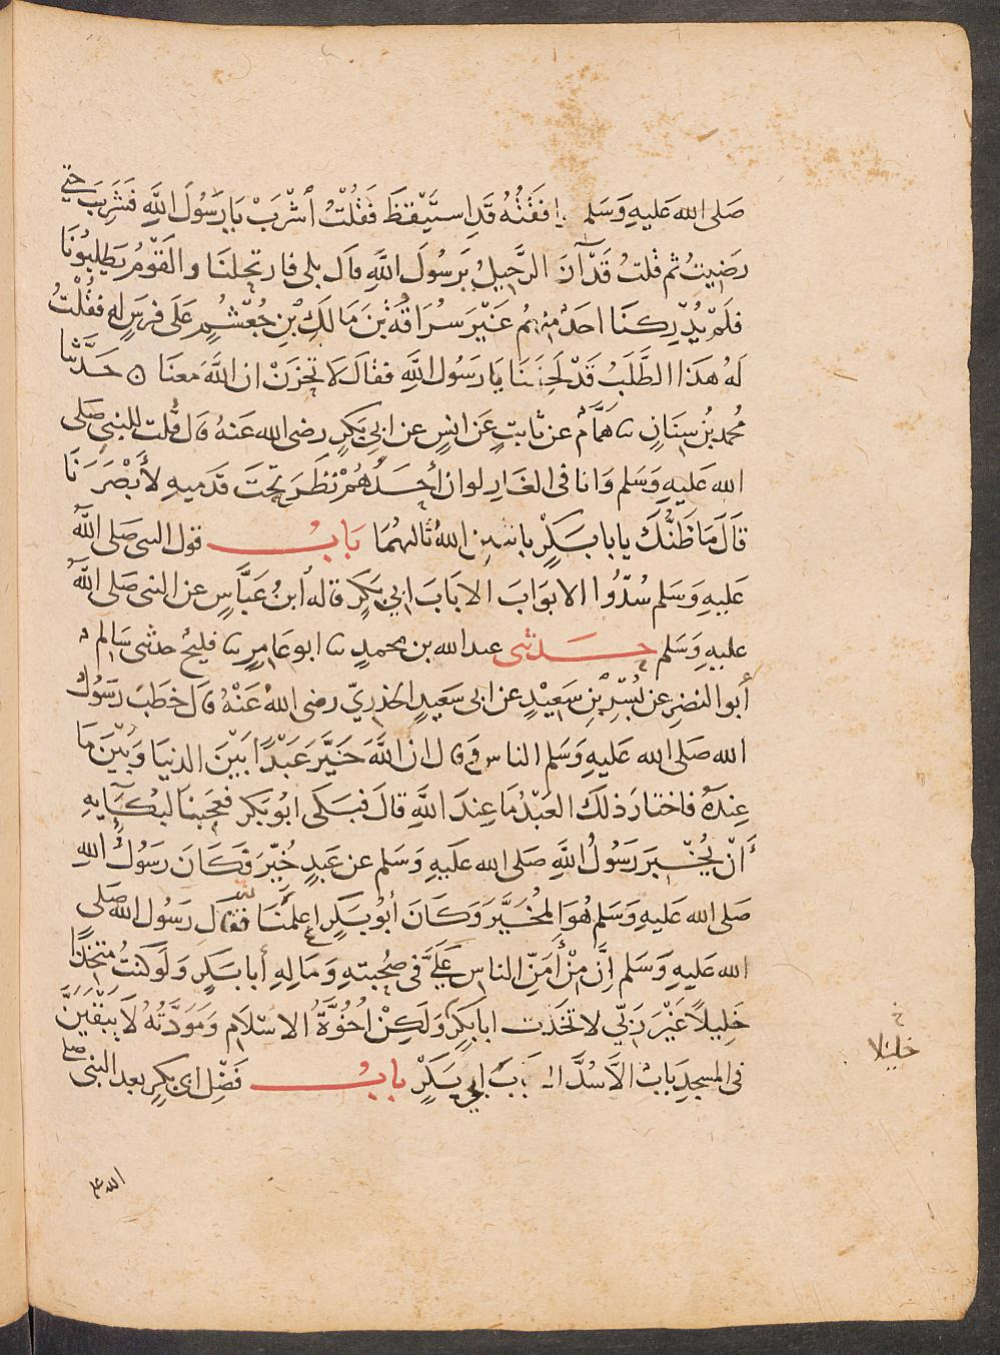 صَلى الله عَليهِ وَسَلم فوافقتُهُ قَدِ استَيْقظَ فَقُلْتُ اشْرَبْ يَا رَسُولَ اللَّهِ فَشَرِبَ حتى
رَضِيتُ ثم قلتُ قَدْ آنَ الرَّحِيلُ يَرَسُولَ اللَّهِ قال بلى فارتحلنَا والقَوْمُ يَطلِبُونَا
فَلَمْ يُدْرِكنَا احَدٌ منهم غَيْرَ سُرَاقَةَ بْنَ مَالَكِ بْنِ جُعْشُمٍ عَلَى فرَسٍ له فقُلْتُ
لهُ هَذَا الطَّلَبُ قَدْ لَحِقَنَا يَا رَسُول اللَّهِ فقالَ لَا تحزَنْ ان اللَّهَ مَعنَا ه حَدَّثنا
محمد بْنُ سِنَانٍ ثنا هَمَّام عن ثابتٍ عَن انسٍ عن ابي بَكرٍ رضى الله عَنهُ قال قُلت للنبي صَلى
الله عَليهِ وَسَلم وَانا فى الغَارِ لو ان أحَدَهُمْ نَظَرَ تحْتَ قَدَميهِ لأَبْصَرَنَا
قَالَ مَا ظَنُّكَ يا با بَكْرٍ باثنينِ اللهُ ثالثهُمَا بَابُ قول النبى صَلى اللَّه
عَليهِ وَسَلم سُدُّوا الابْوَابَ الا بَابَ ابي بَكرٍ قاله ابنُ عَبَّاسٍ عن النبى صَلى اللَّه
عليهِ وَسَلم حَدثنى عبد الله بن محمدٍ ثنا ابو عَامِرٍ ثنا فليحٌ حدثنى سَالم
أبو النضرِ عن بُسْرِ بْنِ سَعِيْدٍ عن ابى سَعيدٍ الخدرِيّ رضى اللهُ عَنْهُ قالَ خطَبَ رَسُولُ
الله صَلى الله عَليهِ وَسَلم الناس وَقال ان اللَّهَ خَيَّرَ عَبْدًا بَيْنَ الدنيَا وَبَيْنَ مَا
عِندَهُ فاختارَ ذلكَ العَبْدُ مَا عِندَ اللَّهِ قالَ فبَكَى ابُو بَكر فعجبنَا لبُكَآيهِ
أَنْ يُخْبِرَ رَسُولُ اللَّهِ صَلى الله عَليهِ وَسَلم عن عَبدٍ خُيِّرَ فَكَانَ رَسُولُ الله
صَلى الله عَليهِ وَسَلم هُوَ المُخَيَّرَ وَكَانَ أبُو بَكرٍ اعلمَنَا فقال رَسُول الله صَلى
الله عَليهِ وَسَلم اِنَّ مِنْ أَمَنِّ الناس عَلَيَّ فى صُحْبتهِ وَمَالِهِ أبا بَكرٍ وَلَو كنتُ متخذًا
خَلِيلًا غَيْرَ رَبّى لاتخذت ابا بكرٍ وَلَكِنْ اخُوَّةُ الاسْلَام وَمَوَدَّتُهُ لَا يَبْقَيَنَّ
فى المسجدِ بَابٌ الاَّ سُدَّ الا بَابَ ابي بَكْرٍ بابُ فَضْلِ ابى بكرٍ بعد النبى صلى
خ
خليلا
الله ع